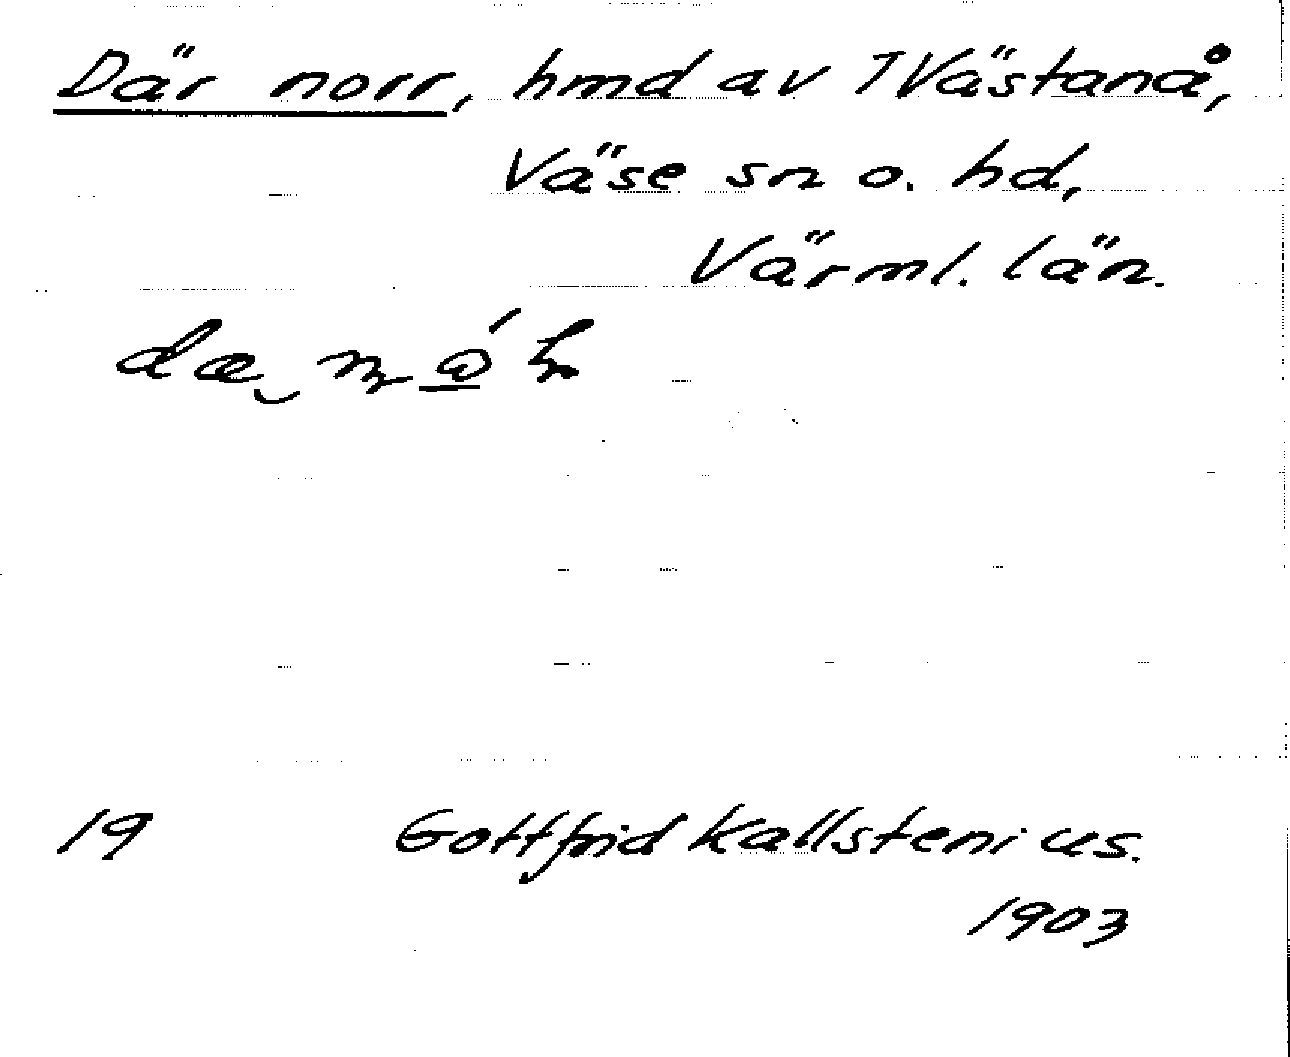 Där norr, hmd av TVästanå,
Väse sn o. hd,
Värml. län.
19 Gottfrid Kallstenius.
1903